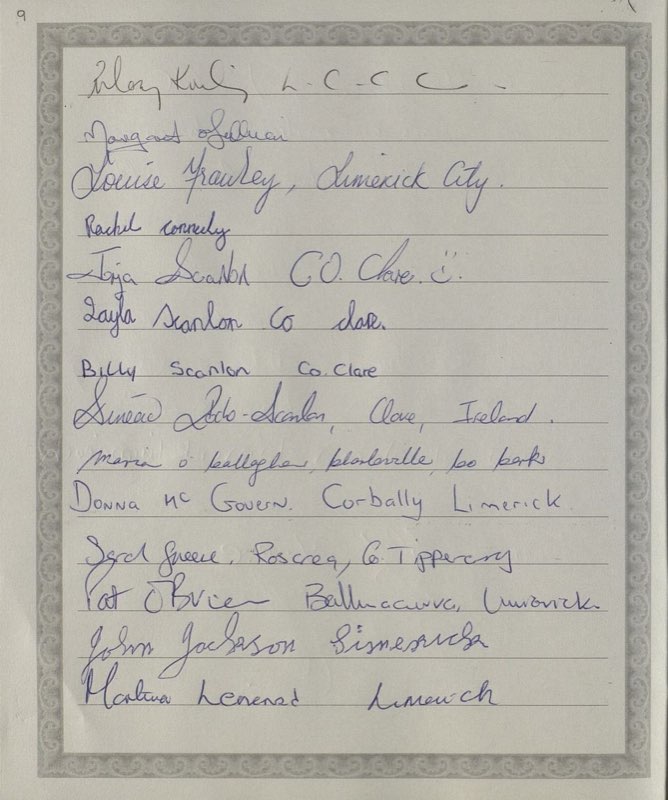 9
L.C.C.C.
Margaret O'Sullivan
Louise Frawley, Limerick City.
Rachel Connelly
Torja Scanlon CO. Clare. :)
Layla Scanlon Co clare.
Billy Scanlon Co. Clare
Sinéad Scanlan, Clare, Ireland.
Maria O'Callaghan, Charleville, Co Cork
Donna Mc Govern. Corbally Limerick
Greene, Roscrea, Co Tipperary
Pat O'Brien Limerick.
John Jackson Limerick
Martina Limerick